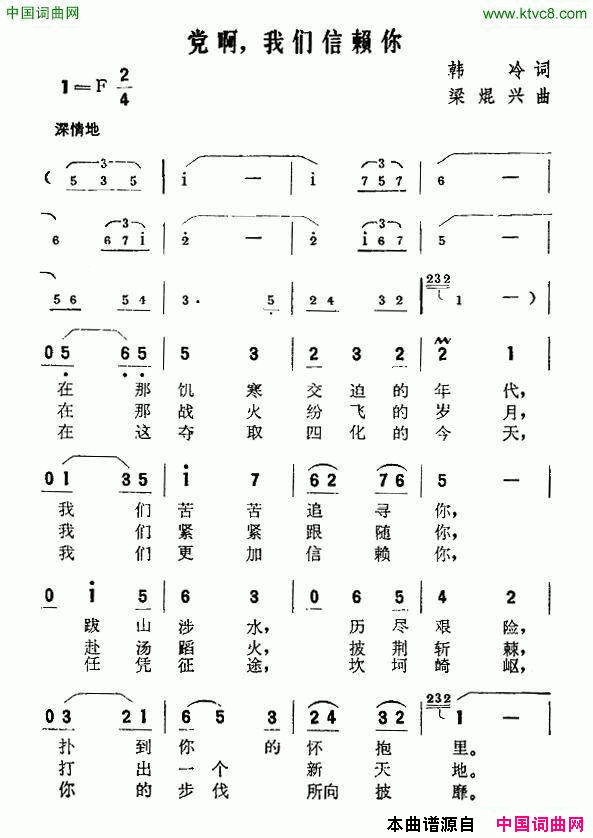 中国词曲网
www.ktvc8.com
党啊，我们信赖你
1＝F 2/4
韩 冷 词
梁焜兴 曲
深情地
( 5 3 5 | i — | i 7 5 7 | 6 — |
6 6 7 i | 2 — | 2 i 6 7 | 5 — |
5 6 5 4 | 3. 5 | 2 4 3 2 | 232 1 — )
0 5 6 5 | 5 3 | 2 3 2 | 2 1 |
在 那 饥 寒 交 迫 的 年 代，
在 那 战 火 纷 飞 的 岁 月，
在 这 夺 取 四 化 的 今 天，
0 1 3 5 | i 7 | 6 2 7 6 | 5 — |
我 们 苦 苦 追 寻 你，
我 们 紧 紧 跟 随 你，
我 们 更 加 信 赖 你，
0 i 5 | 6 3 | 0 6 5 | 4 2 |
跋 山 涉 水， 历 尽 艰 险，
赴 汤 蹈 火， 披 荆 斩 棘，
任 凭 征 途， 坎 坷 崎 岖，
0 3 2 1 | 6 5 3 | 2 4 3 2 | 232 1 — |
扑 到 你 的 怀 抱 里。
打 出 一 个 新 天 地。
你 的 步 伐 所向 披 靡。
本曲谱源自 中国词曲网